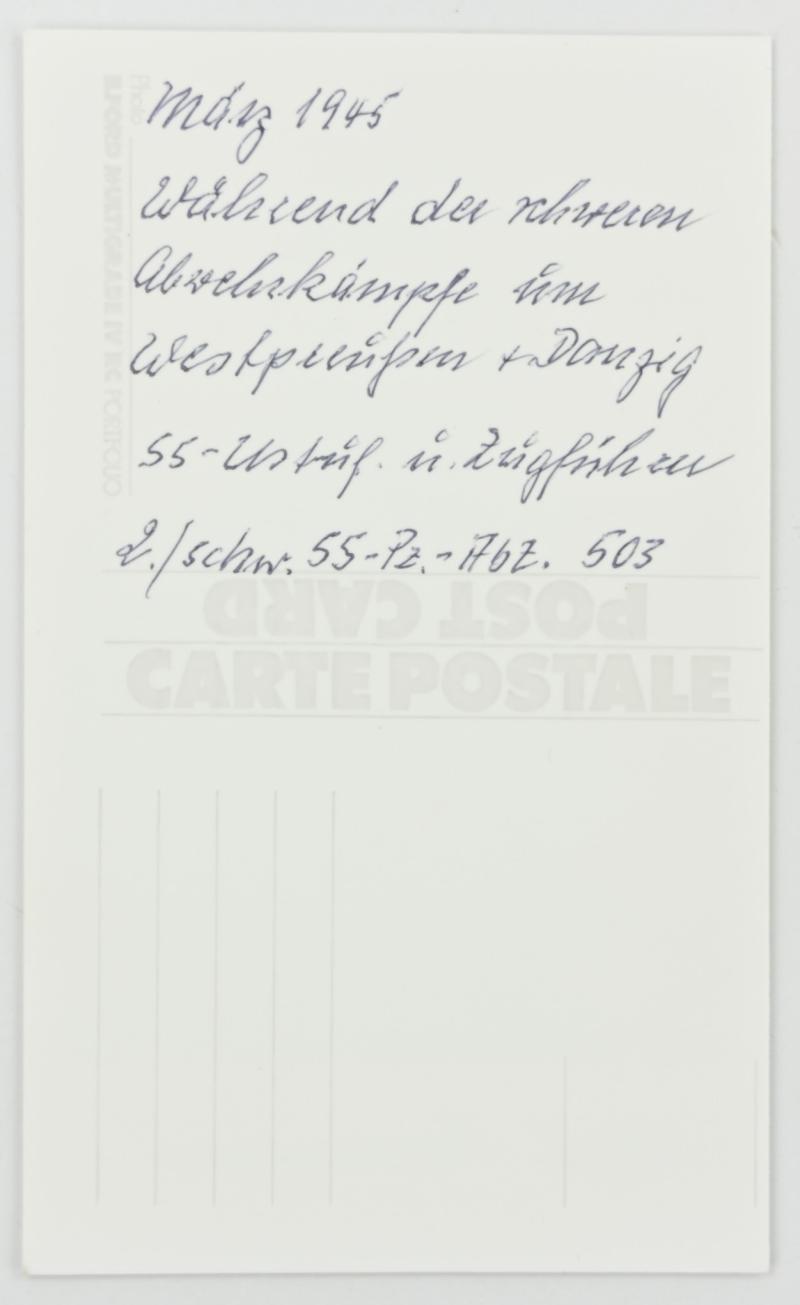 März 1945
Während der schweren
Abwehrkämpfe um
Westpreußen + Danzig
SS-Ustuf. u. Zugführer
2./schw. SS-Pz.-Abt. 503
POST CARD
CARTE POSTALE
Photo
ILFORD MULTIGRADE IV RC PORTFOLIO